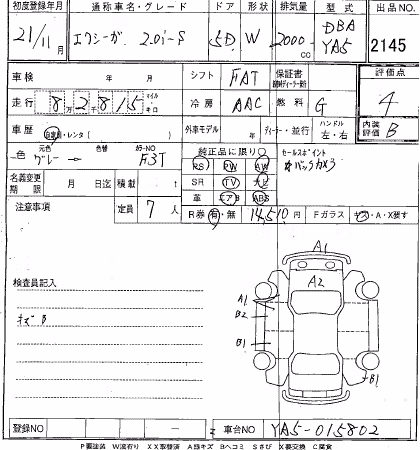 初度登録年月 通称車名・グレード ドア 形状 排気量 型式 出品NO.
21/11月 エクシーガ 2.0i-S 5D W 2000cc DBA YA5 2145
車検 年 月 シフト FAT 保証書 評価点
走行 8万2千815 マイル キロ 冷房 AAC 燃料 G 4
車歴 自家用・レンタ( ) 外車モデル ディーラー・並行 ハンドル 左・右 内装評価 B
色 元色 グレー → 色替 カラーNO F3T 純正品に限り○ セールスポイント
PS PW AW バックカメラ
名義変更期限 月 日迄 積載 t SR TV ナビ
注意事項 定員 7人 革 エアB ABS
R券 有・無 14,510円 Fガラス キズ・A・X要す
A1
A2
検査員記入
A1
キズB B2
B1
B1
登録NO ― 車台NO YA5-015802
P要塗装 W波有り XX取替済 A線キズ Bヘコミ Sさび X要交換 C腐食